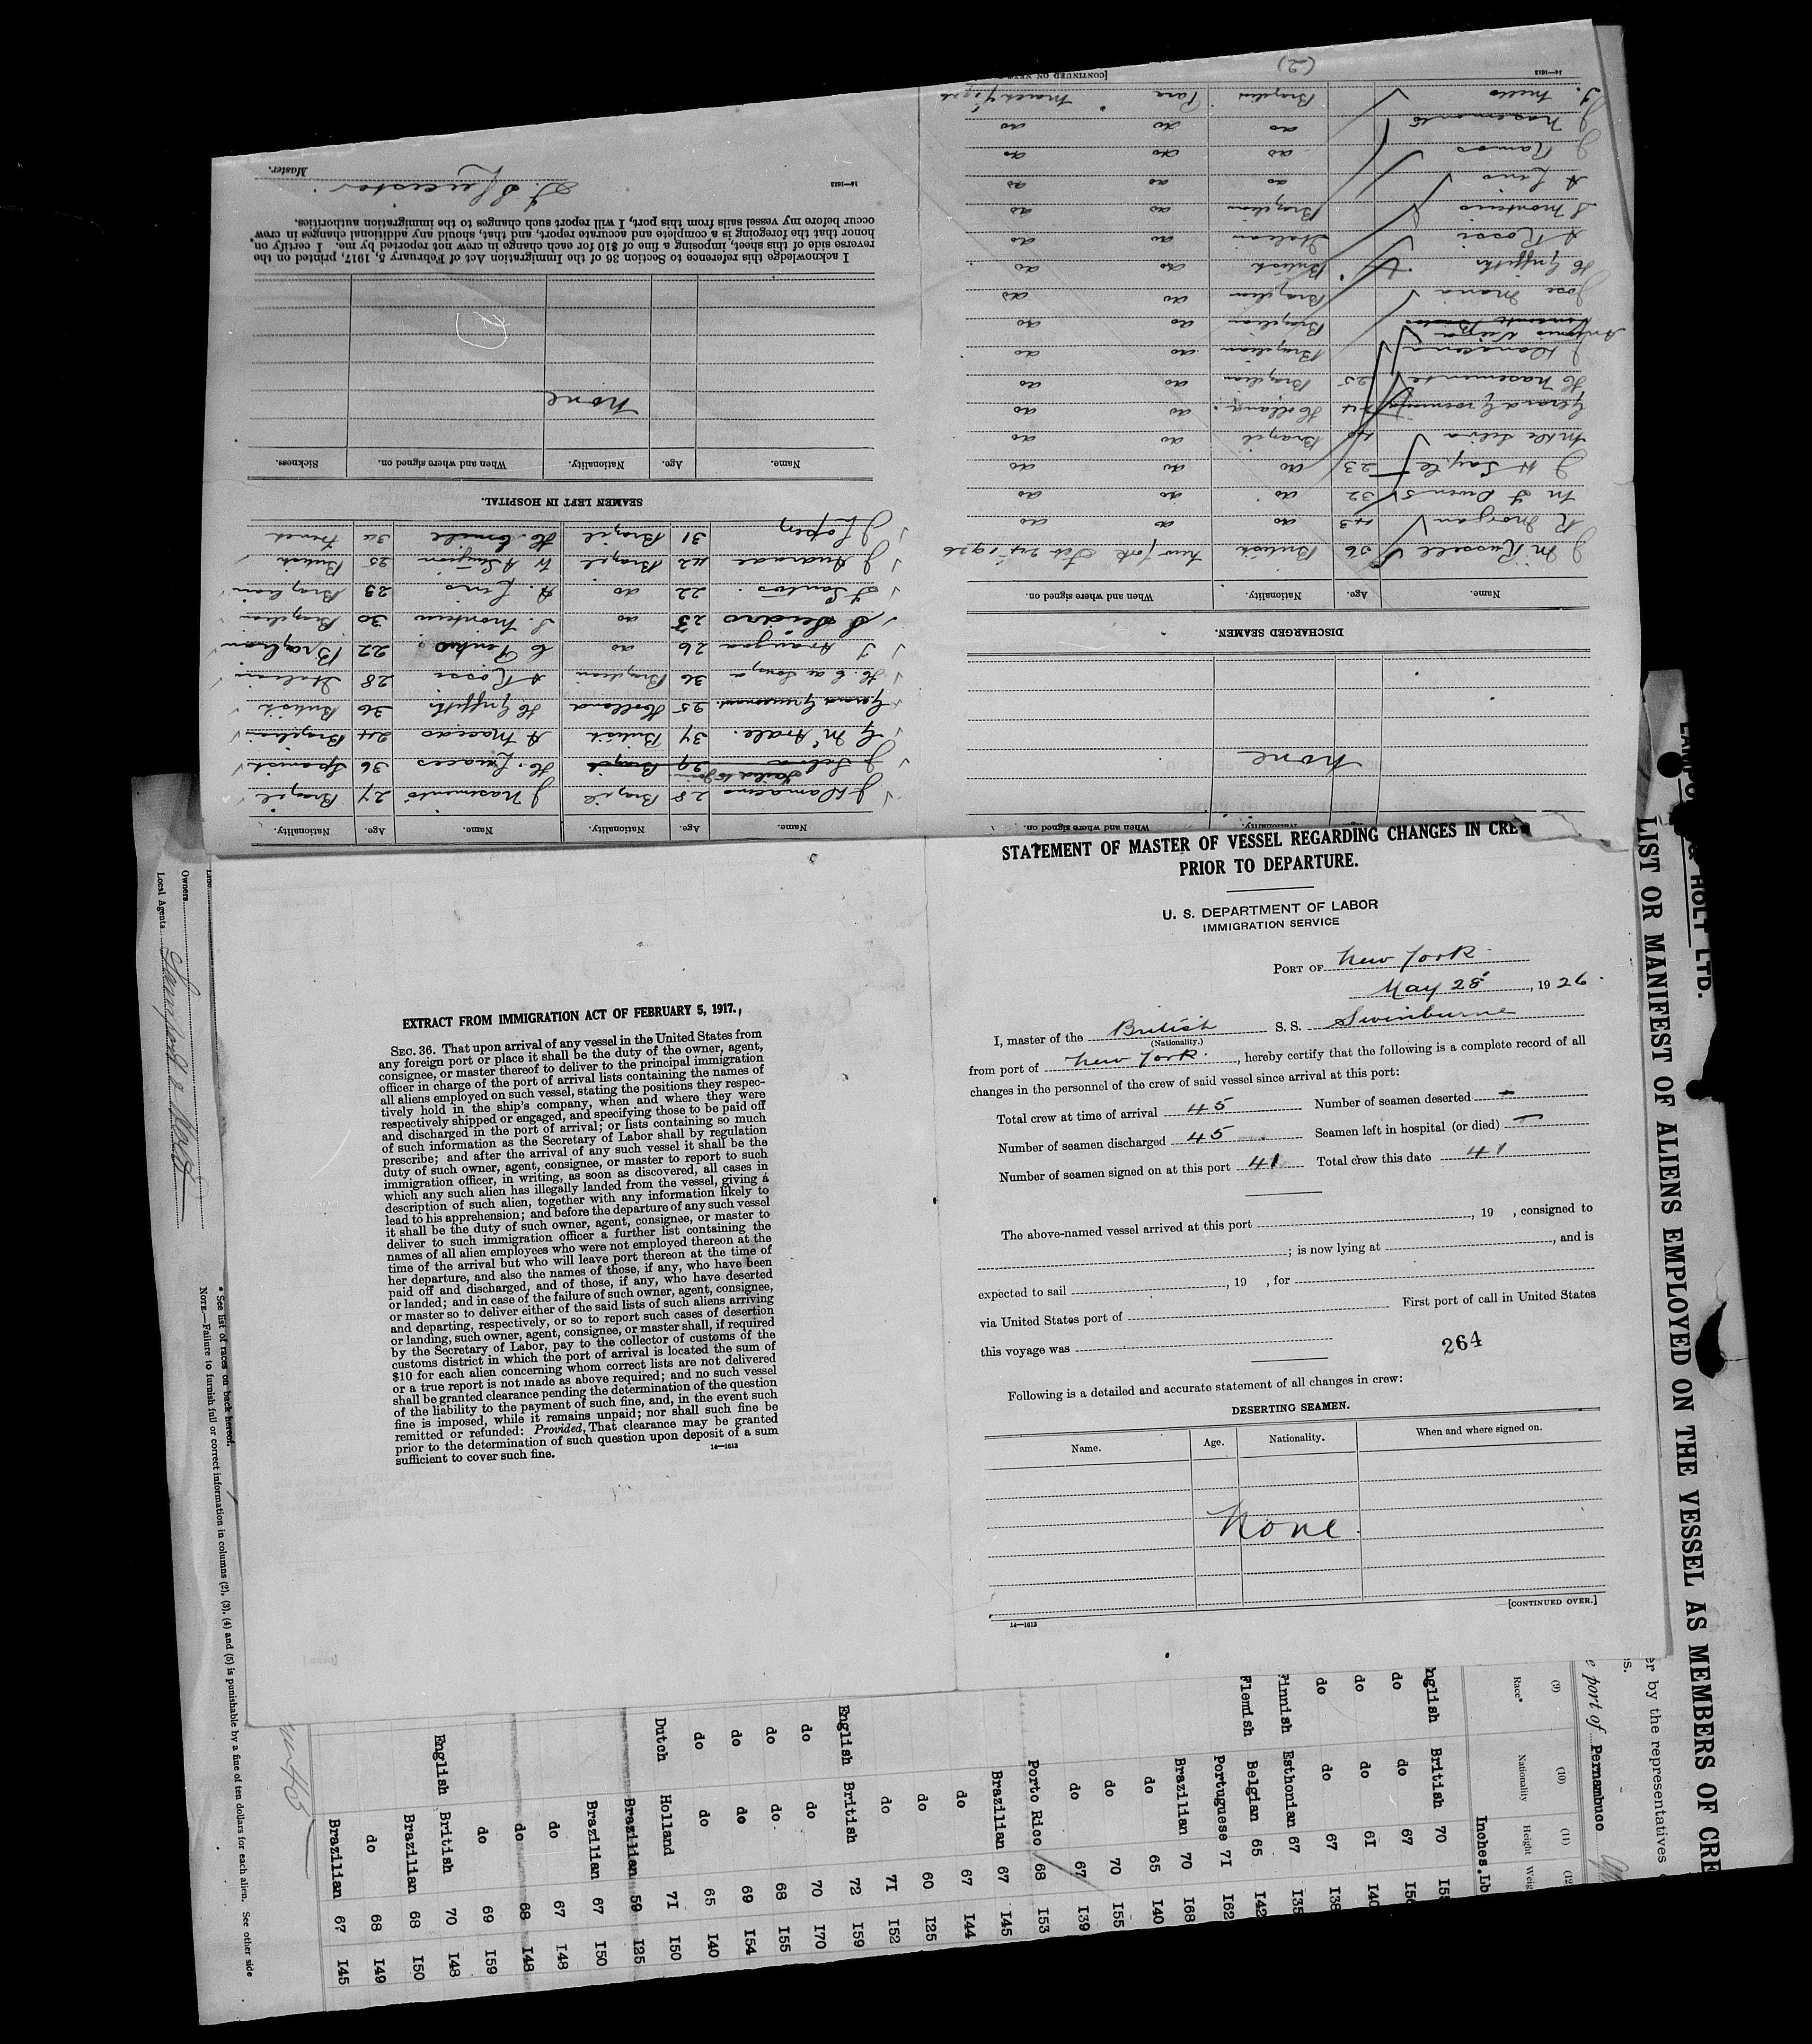 STATEMENT OF MASTER OF VESSEL REGARDING CHANGES IN CREW
PRIOR TO DEPARTURE.
U. S. DEPARTMENT OF LABOR
IMMIGRATION SERVICE
PORT OF New York
May 28, 1926.
I, master of the British S. S. Swinburne
(Nationality.)
from port of New York., hereby certify that the following is a complete record of all
changes in the personnel of the crew of said vessel since arrival at this port:
Total crew at time of arrival 45 Number of seamen deserted -
Number of seamen discharged 45 Seamen left in hospital (or died) -
Number of seamen signed on at this port 41 Total crew this date 41
The above-named vessel arrived at this port , 19 , consigned to
; is now lying at , and is
expected to sail , 19 , for
via United States port of First port of call in United States
this voyage was
264
Following is a detailed and accurate statement of all changes in crew:
DESERTING SEAMEN.
Name. Age. Nationality. When and where signed on.
None.
[CONTINUED OVER.]
14—1613
EXTRACT FROM IMMIGRATION ACT OF FEBRUARY 5, 1917.
SEC. 36. That upon arrival of any vessel in the United States from
any foreign port or place it shall be the duty of the owner, agent,
consignee, or master thereof to deliver to the principal immigration
officer in charge of the port of arrival lists containing the names of
all aliens employed on such vessel, stating the positions they respec-
tively hold in the ship's company, when and where they were
respectively shipped or engaged, and specifying those to be paid off
and discharged in the port of arrival; or lists containing so much
of such information as the Secretary of Labor shall by regulation
prescribe; and after the arrival of any such vessel it shall be the
duty of such owner, agent, consignee, or master to report to such
immigration officer, in writing, as soon as discovered, all cases in
which any such alien has illegally landed from the vessel, giving a
description of such alien, together with any information likely to
lead to his apprehension; and before the departure of any such vessel
it shall be the duty of such owner, agent, consignee, or master to
deliver to such immigration officer a further list containing the
names of all alien employees who were not employed thereon at the
time of the arrival but who will leave port thereon at the time of
her departure, and also the names of those, if any, who have been
paid off and discharged, and of those, if any, who have deserted
or landed; and in case of the failure of such owner, agent, consignee,
or master so to deliver either of the said lists of such aliens arriving
and departing, respectively, or so to report such cases of desertion
or landing, such owner, agent, consignee, or master shall, if required
by the Secretary of Labor, pay to the collector of customs of the
customs district in which the port of arrival is located the sum of
$10 for each alien concerning whom correct lists are not delivered
or a true report is not made as above required; and no such vessel
shall be granted clearance pending the determination of the question
of the liability to the payment of such fine, and, in the event such
fine is imposed, while it remains unpaid; nor shall such fine be
remitted or refunded: Provided, That clearance may be granted
prior to the determination of such question upon deposit of a sum
sufficient to cover such fine.
14—1613
When and where signed on.
None
DISCHARGED SEAMEN.
Name. Age. Nationality. When and where signed on.
J M Russell 56 British New York Feb 24 1926
R Morgan 43 do do do
M J Owens 32 do do do
J H Sayle 23 do do do
40 Brazil do do
Holland do do
H Nasemento 25 Brazilian do do
J Damacena Brazilian do do
Antonio Brazilian do do
Jose Maria Brazilian do do
H Griffiths British do do
A Rossi Italian do do
S Monteiro Brazilian do do
A Lino do do do
J Ramos do do do
J Nasemento do do do
Brazilian Para March 9 1926
14—1613
(2)
Name. Age. Nationality. Name. Age. Nationality.
J Damaceno 28 Brazil J Nasemento 27 Brazil
J Silva 29 Brazil H. 36 Spanish
Failed to Join
G McArdle. 34 British A Macedo 24 Brazilian
25 Holland H Griffiths 36 British
H. C de Souza 36 Brazilian A Rossi 28 Italian
26 do C 22 Brazilian
23 do S. Monteiro 30 Brazilian
F Santos. 22 do A. Lino 23 Brazilian
J Andrade 42 Brazil W A 25 British
J Lopez 31 Brazil H. 36 French
SEAMEN LEFT IN HOSPITAL.
Name. Age. Nationality. When and where signed on. Sickness.
None
I acknowledge this reference to Section 36 of the Immigration Act of February 5, 1917, printed on the
reverse side of this sheet, imposing a fine of $10 for each change in crew not reported by me. I certify on
honor that the foregoing is a complete and accurate report, and that, should any additional changes in crew
occur before my vessel sails from this port, I will report such changes to the immigration authorities.
14—1613
Master.
HOLT LTD.
LIST OR MANIFEST OF ALIENS EMPLOYED ON THE VESSEL AS MEMBERS OF CRE
er by the representatives
e port of Pernambuco
(9) (10) (11) (12
Race* Nationality Height Weig
Inches. Lb
nglish British 70 155
do do 67 156
do do 61 140
do do 67 138
Finnish Esthonian 67 135
Flemish Belgian 65 142
Portuguese 71 162
Brazilian 70 168
do 65 140
do 70 155
do 67 139
Porto Rico 68 153
Brazilian 67 145
do 67 144
do 60 125
do 71 152
English British 72 159
do do 70 170
do do. 68 155
do do 69 154
do do 65 140
Dutch Holland 71 150
Brazilian 59 125
Brazilian 67 150
do 67 148
do 68 148
do 69 159
English British 70 148
Brazilian 68 150
do 68 149
Brazilian 67 145
Owners
Local Agents Lamport & Holt
* See list of races on back hereof.
NOTE.—Failure to furnish full or correct information in columns (2), (3), (4) and (5) is punishable by a fine of ten dollars for each alien. See other side